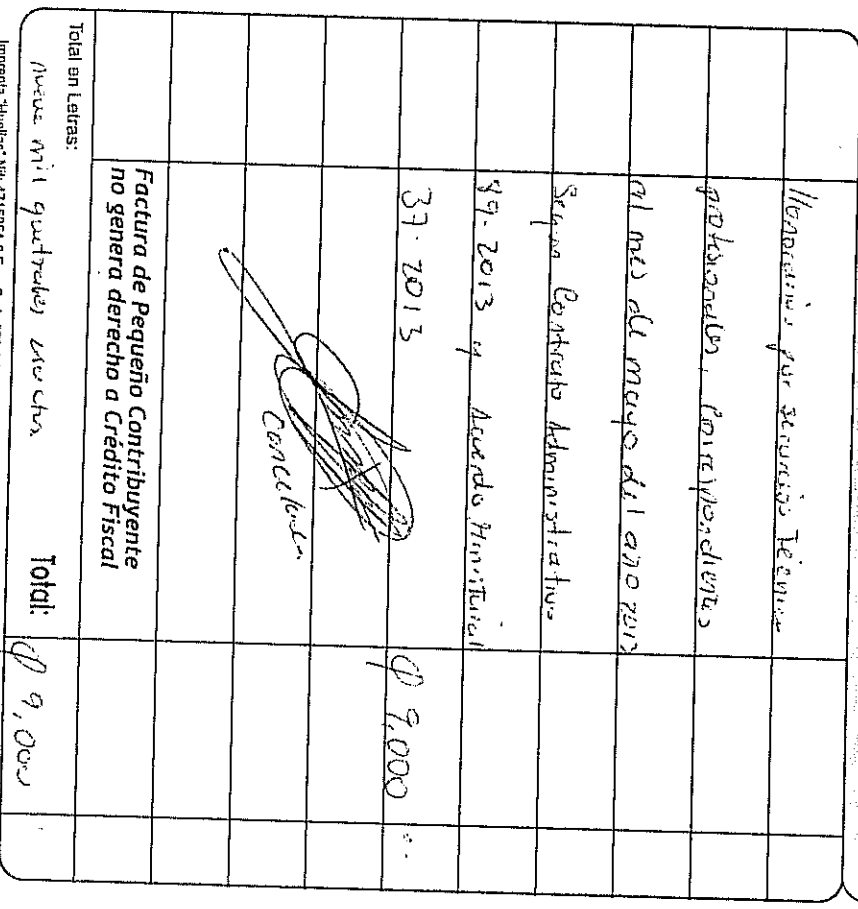 Honorarios por servicios Técnicos
profesionales, Correspondientes
al mes de mayo del año 2013
Segun Contrato Administrativo
99-2013 y Acuerdo Ministerial
37-2013 Q 9,000
Cancelado
Factura de Pequeño Contribuyente
no genera derecho a Crédito Fiscal
Total en Letras:
nueve mil quetzales exactos Total: Q 9,000
Imprenta